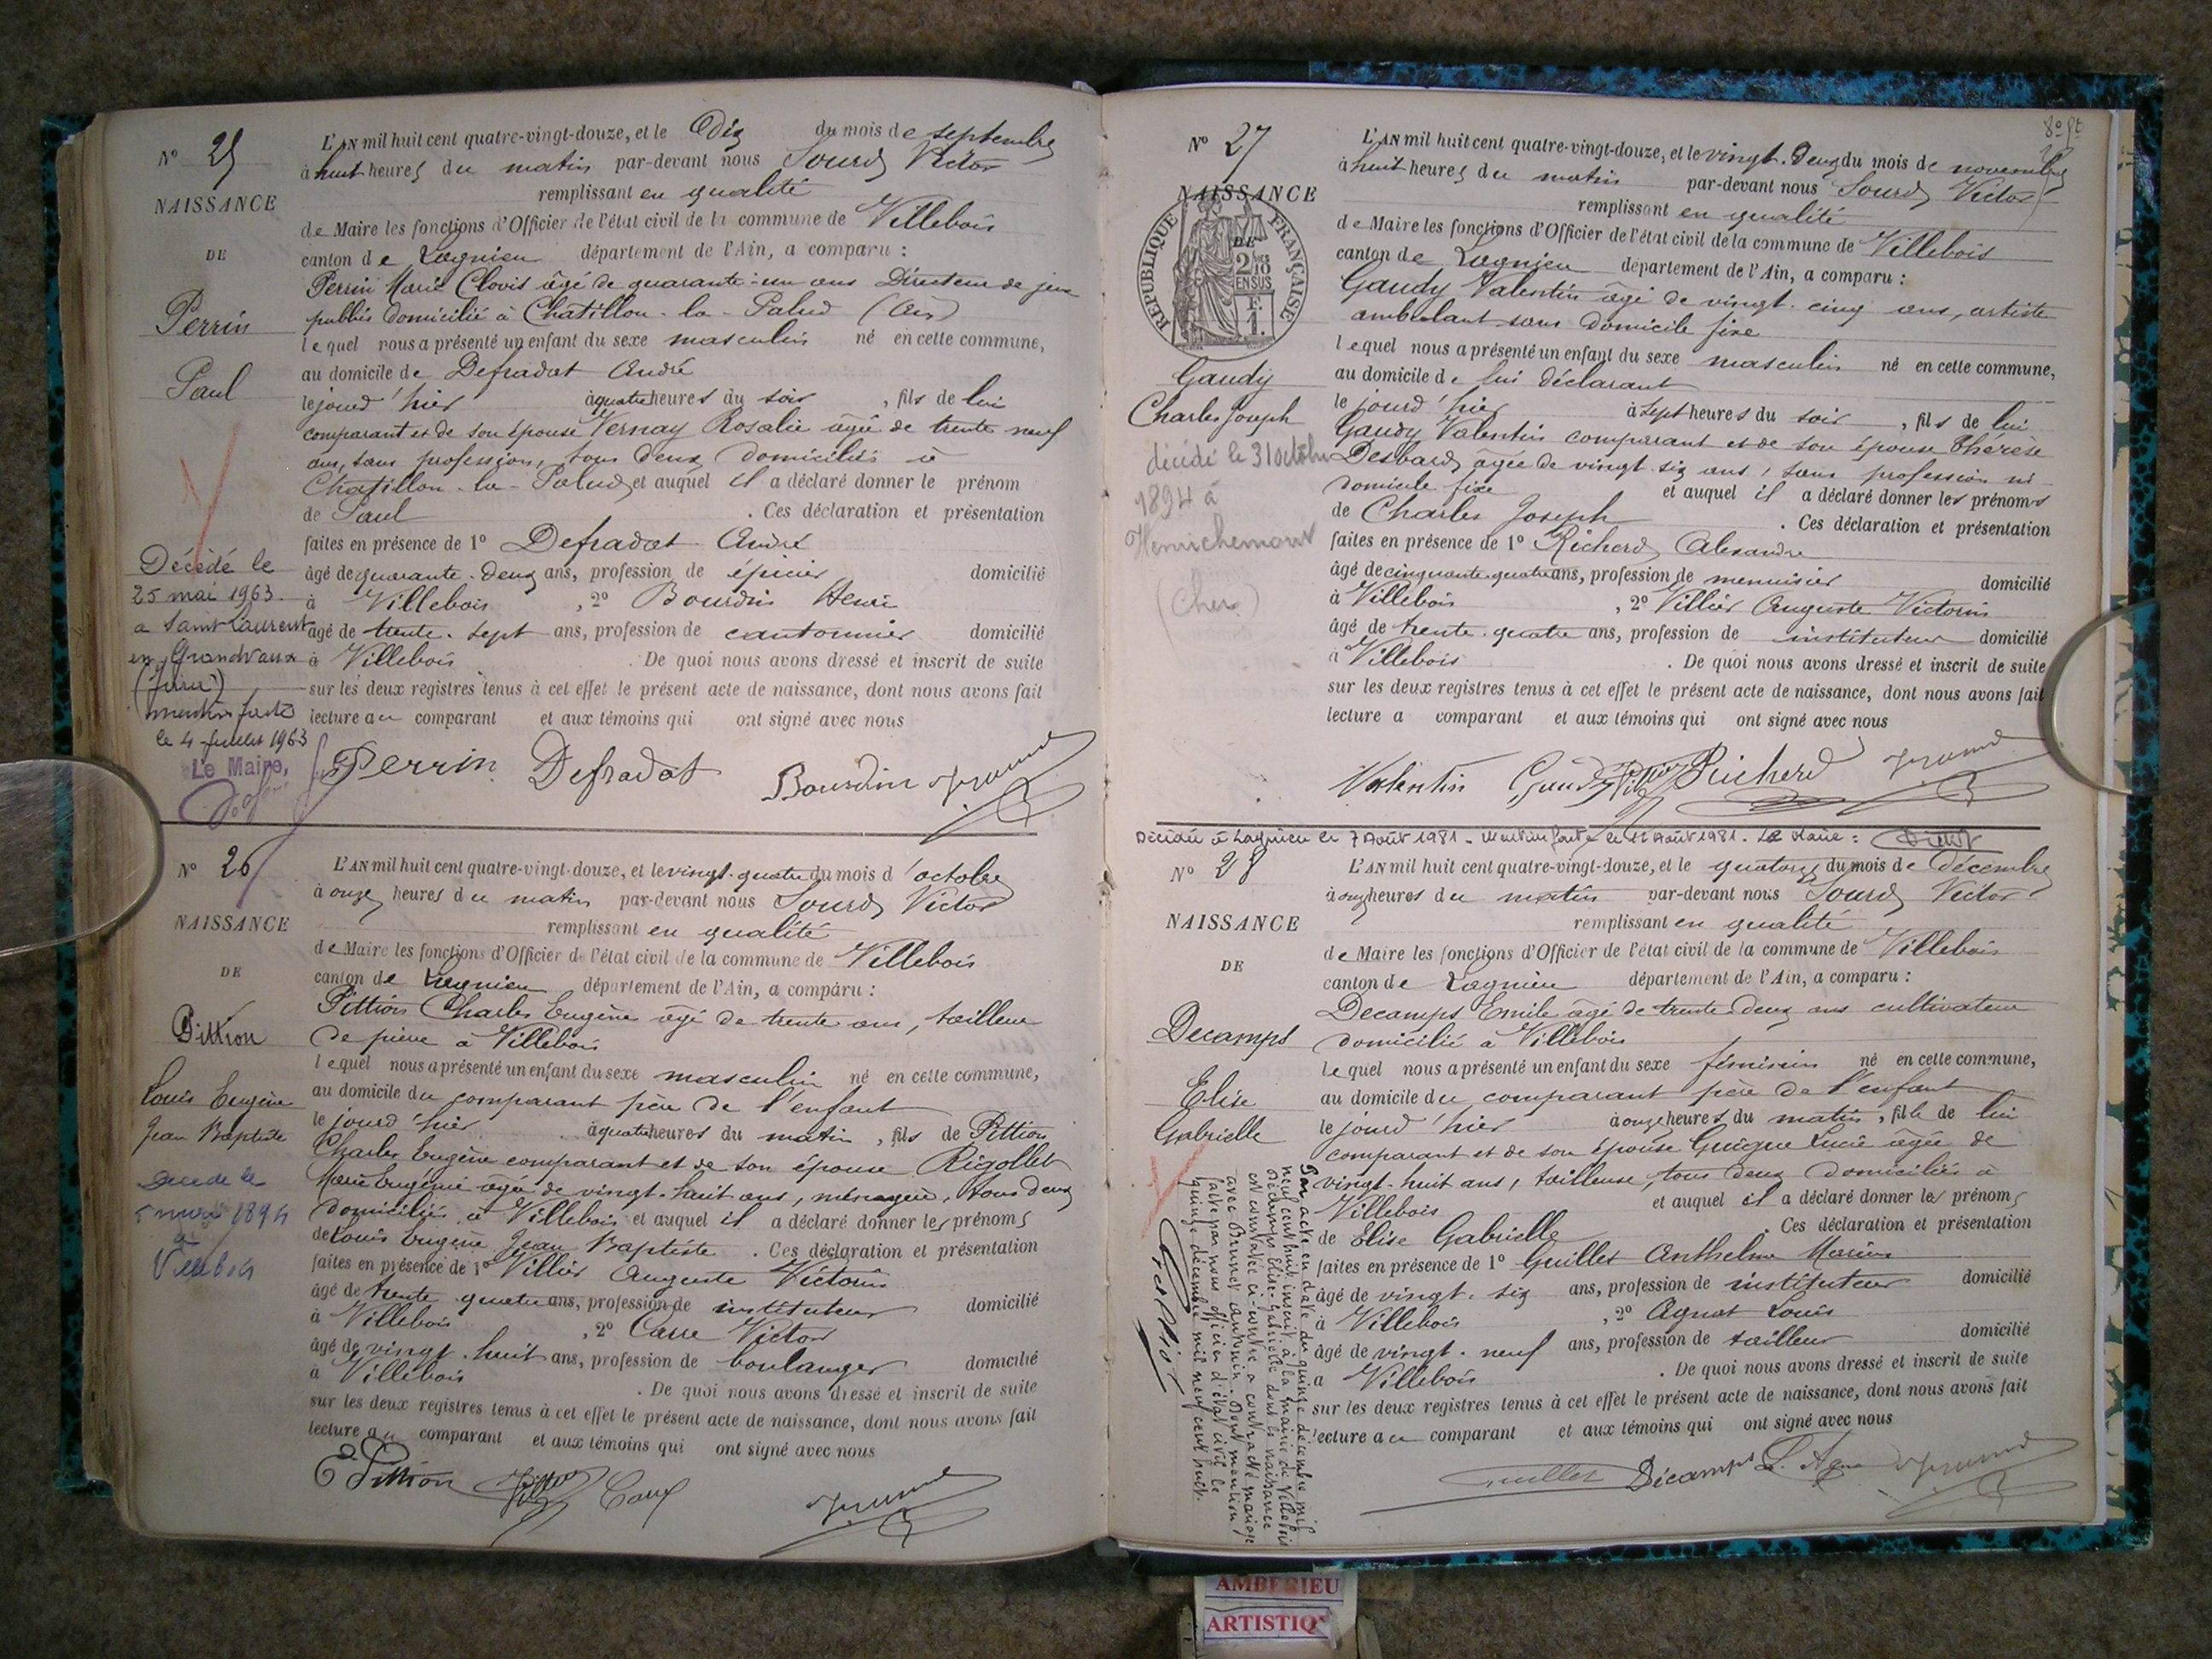 N° 25
NAISSANCE
DE
Perrin
Paul
Décédé le
25 mai 1963
a Saint Laurent
en Grandvaux
(Jura)
mention faite
le 4 juillet 1963
Le Maire,
L'AN mil huit cent quatre-vingt-douze, et le Dix du mois de septembre
à huit heures du matin par-devant nous Sourd Victor
remplissant en qualité
de Maire les fonctions d'Officier de l'état civil de la commune de Villebois
canton de Lagnieu département de l'Ain, a comparu :
Perrin Marie Clovis âgé de quarante-un ans Directeur de jeux
publics domicilié à Chatillon-la-Palud (Ain)
lequel nous a présenté un enfant du sexe masculin né en cette commune,
au domicile de Defradat André
le jourd'hier à quatre heures du soir, fils de lui
comparant et de son épouse Vernay Rosalie âgée de trente neuf
ans, sans profession, tous deux domiciliés à
Chatillon-la-Palud et auquel il a déclaré donner le prénom
de Paul . Ces déclaration et présentation
faites en présence de 1° Defradat André
âgé de quarante-deux ans, profession de épicier domicilié
à Villebois , 2° Bourdin Henri
âgé de trente-sept ans, profession de cantonnier domicilié
à Villebois . De quoi nous avons dressé et inscrit de suite
sur les deux registres tenus à cet effet le présent acte de naissance, dont nous avons fait
lecture au comparant et aux témoins qui ont signé avec nous
Perrin Defradat Bourdin
N° 26
NAISSANCE
DE
Pittion
Louis Eugène
Jean Baptiste
1894
à
Villebois
L'AN mil huit cent quatre-vingt-douze, et le vingt-quatre du mois d'octobre
à onze heures du matin par-devant nous Sourd Victor
remplissant en qualité
de Maire les fonctions d'Officier de l'état civil de la commune de Villebois
canton de Lagnieu département de l'Ain, a comparu :
Pittion Charles Eugène âgé de trente ans, tailleur
de pierre à Villebois
lequel nous a présenté un enfant du sexe masculin né en cette commune,
au domicile du comparant père de l'enfant
le jourd'hier à quatre heures du matin, fils de Pittion
Charles Eugène comparant et de son épouse Rigollet
Marie Eugénie âgée de vingt-huit ans, ménagère, tous deux
domiciliés à Villebois et auquel il a déclaré donner les prénoms
de Louis Eugène Jean Baptiste . Ces déclaration et présentation
faites en présence de 1° Villier Auguste Victorin
âgé de trente-quatre ans, profession de instituteur domicilié
à Villebois , 2° Carre Victor
âgé de vingt-huit ans, profession de boulanger domicilié
à Villebois . De quoi nous avons dressé et inscrit de suite
sur les deux registres tenus à cet effet le présent acte de naissance, dont nous avons fait
lecture au comparant et aux témoins qui ont signé avec nous
E Pittion
N° 27
NAISSANCE
DE
RÉPUBLIQUE FRANÇAISE
Gaudy
Charles Joseph
décédé le 31 octobre
1894 à
Henrichemont
(Cher)
L'AN mil huit cent quatre-vingt-douze, et le vingt-deux du mois de novembre
à huit heures du matin par-devant nous Sourd Victor
remplissant en qualité
de Maire les fonctions d'Officier de l'état civil de la commune de Villebois
canton de Lagnieu département de l'Ain, a comparu :
Gaudy Valentin âgé de vingt-cinq ans, artiste
ambulant sans domicile fixe
lequel nous a présenté un enfant du sexe masculin né en cette commune,
au domicile de lui déclarant
le jourd'hier à sept heures du soir, fils de lui
Gaudy Valentin comparant et de son épouse Thérèse
Desbard âgée de vingt-six ans, sans profession ni
domicile fixe et auquel il a déclaré donner les prénoms
de Charles Joseph . Ces déclaration et présentation
faites en présence de 1° Richerd Alexandre
âgé de cinquante-quatre ans, profession de menuisier domicilié
à Villebois , 2° Villier Auguste Victorin
âgé de trente-quatre ans, profession de instituteur domicilié
à Villebois . De quoi nous avons dressé et inscrit de suite
sur les deux registres tenus à cet effet le présent acte de naissance, dont nous avons fait
lecture a comparant et aux témoins qui ont signé avec nous
Valentin Gaudy Richerd
Décédée à Lagnieu le 7 Août 1981. Mention faite le 12 Août 1981. Le Maire :
N° 28
NAISSANCE
DE
Decamps
Elise
Gabrielle
Par acte en date du quinze décembre mil
neuf cent huit inscrit à la mairie de Villebois
Décamps Elise Gabrielle dont la naissance
est constatée ci-contre a contracté mariage
avec Brunet Antonin. Dont mention
faite par nous officier d'état civil le
quinze décembre mil neuf cent huit.
L'AN mil huit cent quatre-vingt-douze, et le quatorze du mois de décembre
à onze heures du matin par-devant nous Sourd Victor
remplissant en qualité
de Maire les fonctions d'Officier de l'état civil de la commune de Villebois
canton de Lagnieu département de l'Ain, a comparu :
Decamps Emile âgé de trente-deux ans cultivateur
domicilié à Villebois
lequel nous a présenté un enfant du sexe féminin né en cette commune,
au domicile du comparant père de l'enfant
le jourd'hier à onze heures du matin, fille de lui
comparant et de son épouse Guigue Lucie âgée de
vingt-huit ans, tailleuse, tous deux domiciliés à
Villebois et auquel il a déclaré donner les prénoms
de Elise Gabrielle . Ces déclaration et présentation
faites en présence de 1° Guillet Anthelme Marius
âgé de vingt-six ans, profession de instituteur domicilié
à Villebois , 2° Agnat Louis
âgé de vingt-neuf ans, profession de tailleur domicilié
à Villebois . De quoi nous avons dressé et inscrit de suite
sur les deux registres tenus à cet effet le présent acte de naissance, dont nous avons fait
lecture au comparant et aux témoins qui ont signé avec nous
Guillet Décamps
AMBERIEU
ARTISTIQ